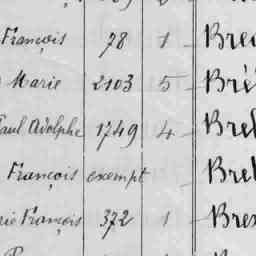 François 78 1 Bre
Marie 2103 5 Bré
Paul Adolphe 1749 4 Bre
François exempt Bre
rie François 372 1 Bre